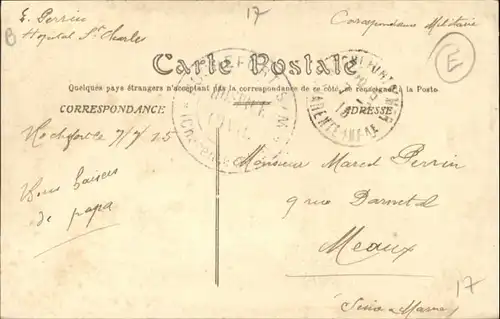 E. Perrin
Hopital St Charles
B
17
Correspondance Militaire
E
Carte Postale
Quelques pays étrangers n'acceptant pas la correspondance de ce côté, se renseigner à la Poste
CORRESPONDANCE
ADRESSE
HOSPICE
CIVIL
Rochefort le 7/7/15
Bons baisers
de papa
Monsieur Marcel Perrin
9 rue Darnetal
Meaux
Seine & Marne
17